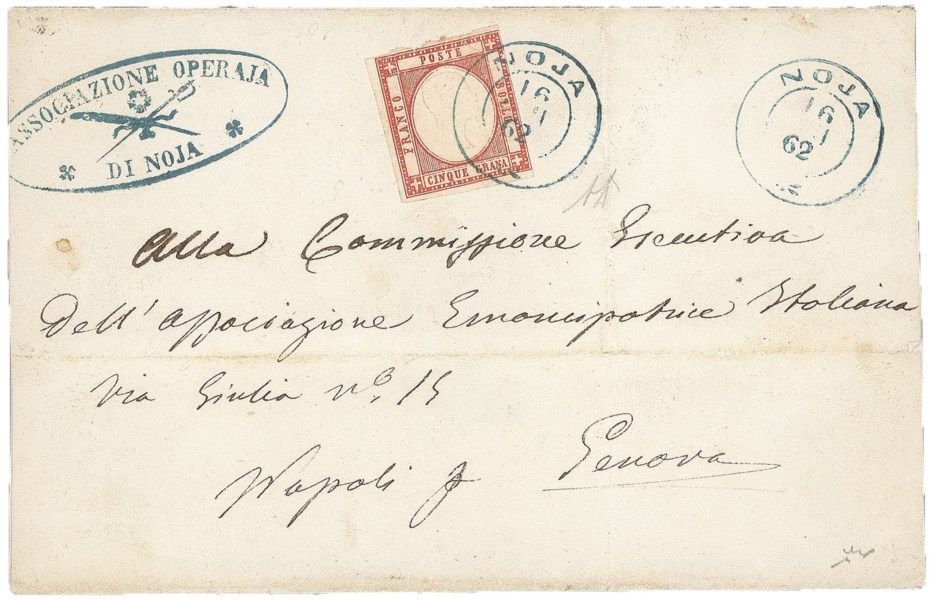 ASSOCIAZIONE OPERAJA
DI NOJA
POSTE
FRANCO
BOLLO
CINQUE GRANA
NOJA
16
62
NOJA
16
62
Alla Commissione Esecutiva
dell'Associazione Emancipatrice Italiana
Via Giulia nº. 15
Napoli p Genova